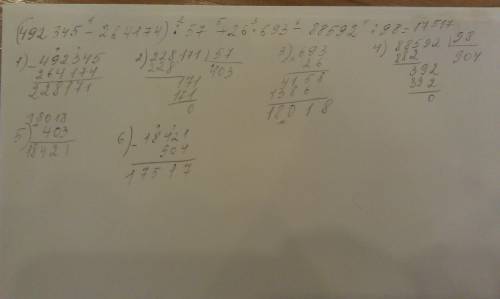 (492 345 - 264174) : 57 + 26 · 693 - 88592 : 98 = 17517
1) - 492345
264174
228171
2) 228171 | 57
228 403
171
171
0
3) 693
26
4158
1386
18018
4) 88592 | 98
882 904
392
392
0
5) 18018
403
18421
6) - 18421
904
17517